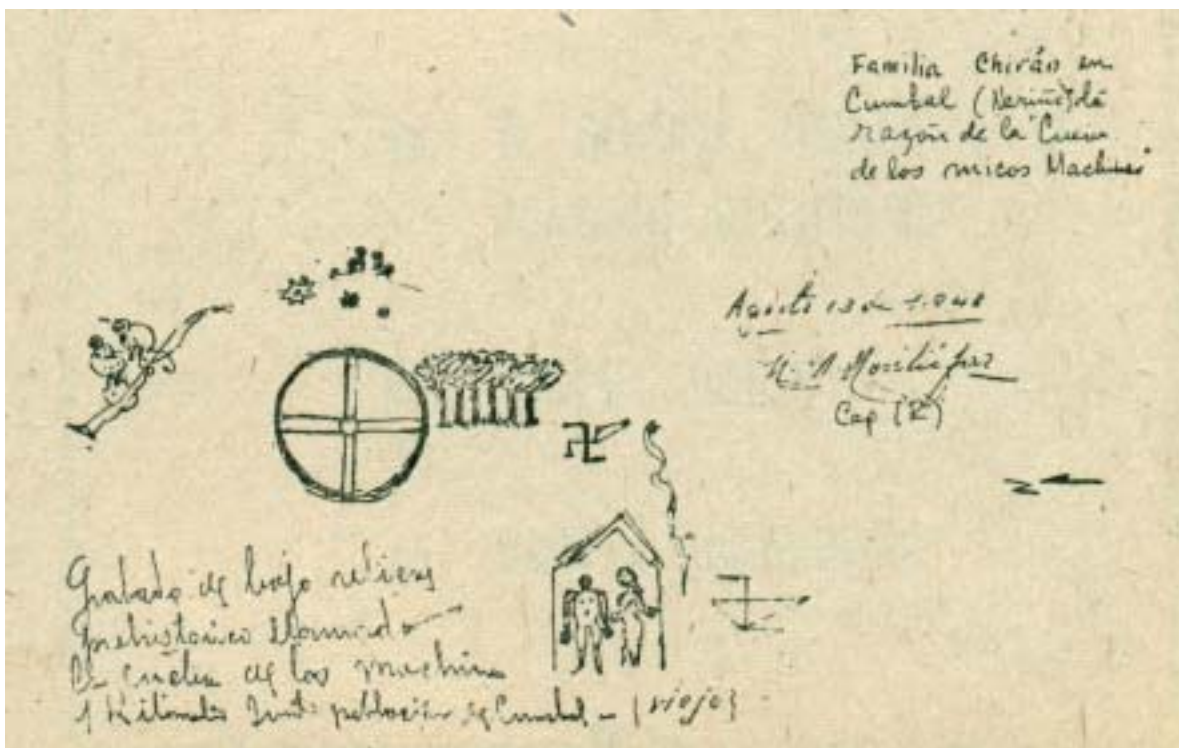 Familia Chirán en
Cumbal (Nariño) dá
razón de la Cueva
de los micos Machines
Agosto 13 de 1.948
Cap (R)
N
Grabado de bajo relieve
prehistorico llamado
de los machines
1 Kilometro población de Cumbal - (viejo)